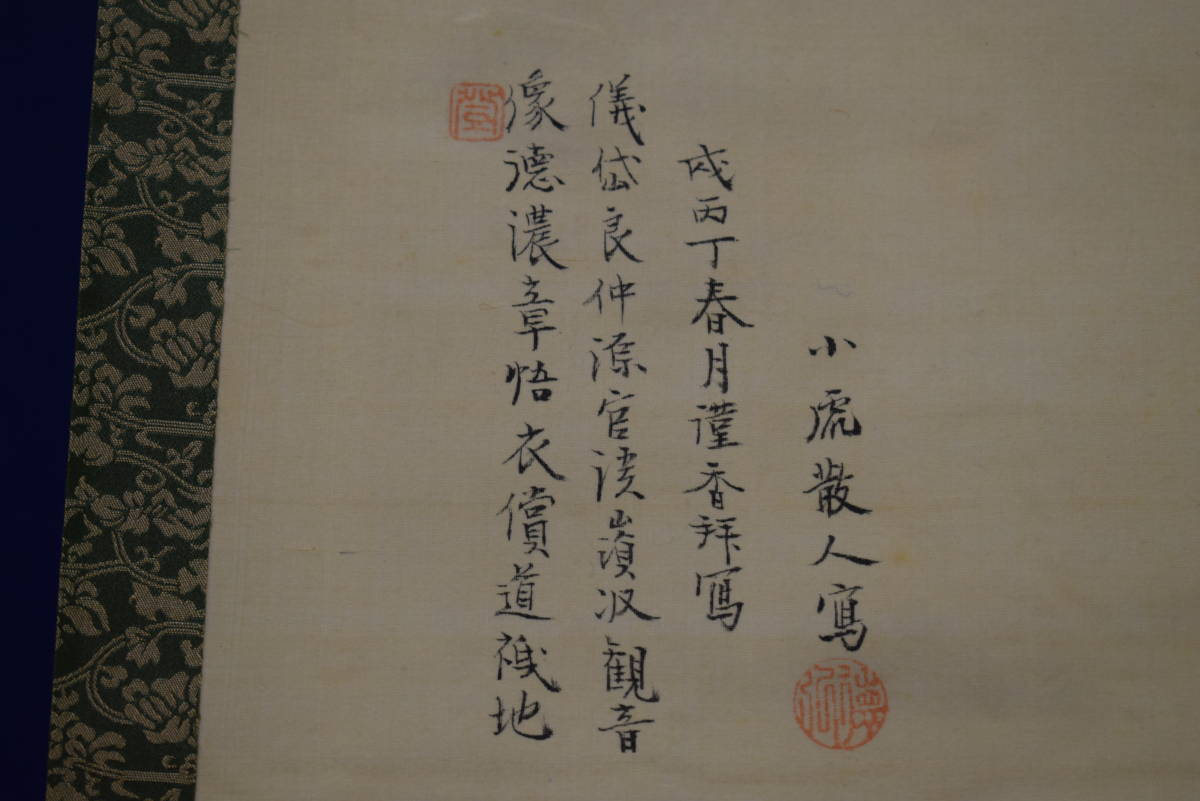 小虎散人寫
戊丙丁春月謹香拜寫
儀岱良仲源官渓嵿汲観音
像德濃章悟衣償道祴地